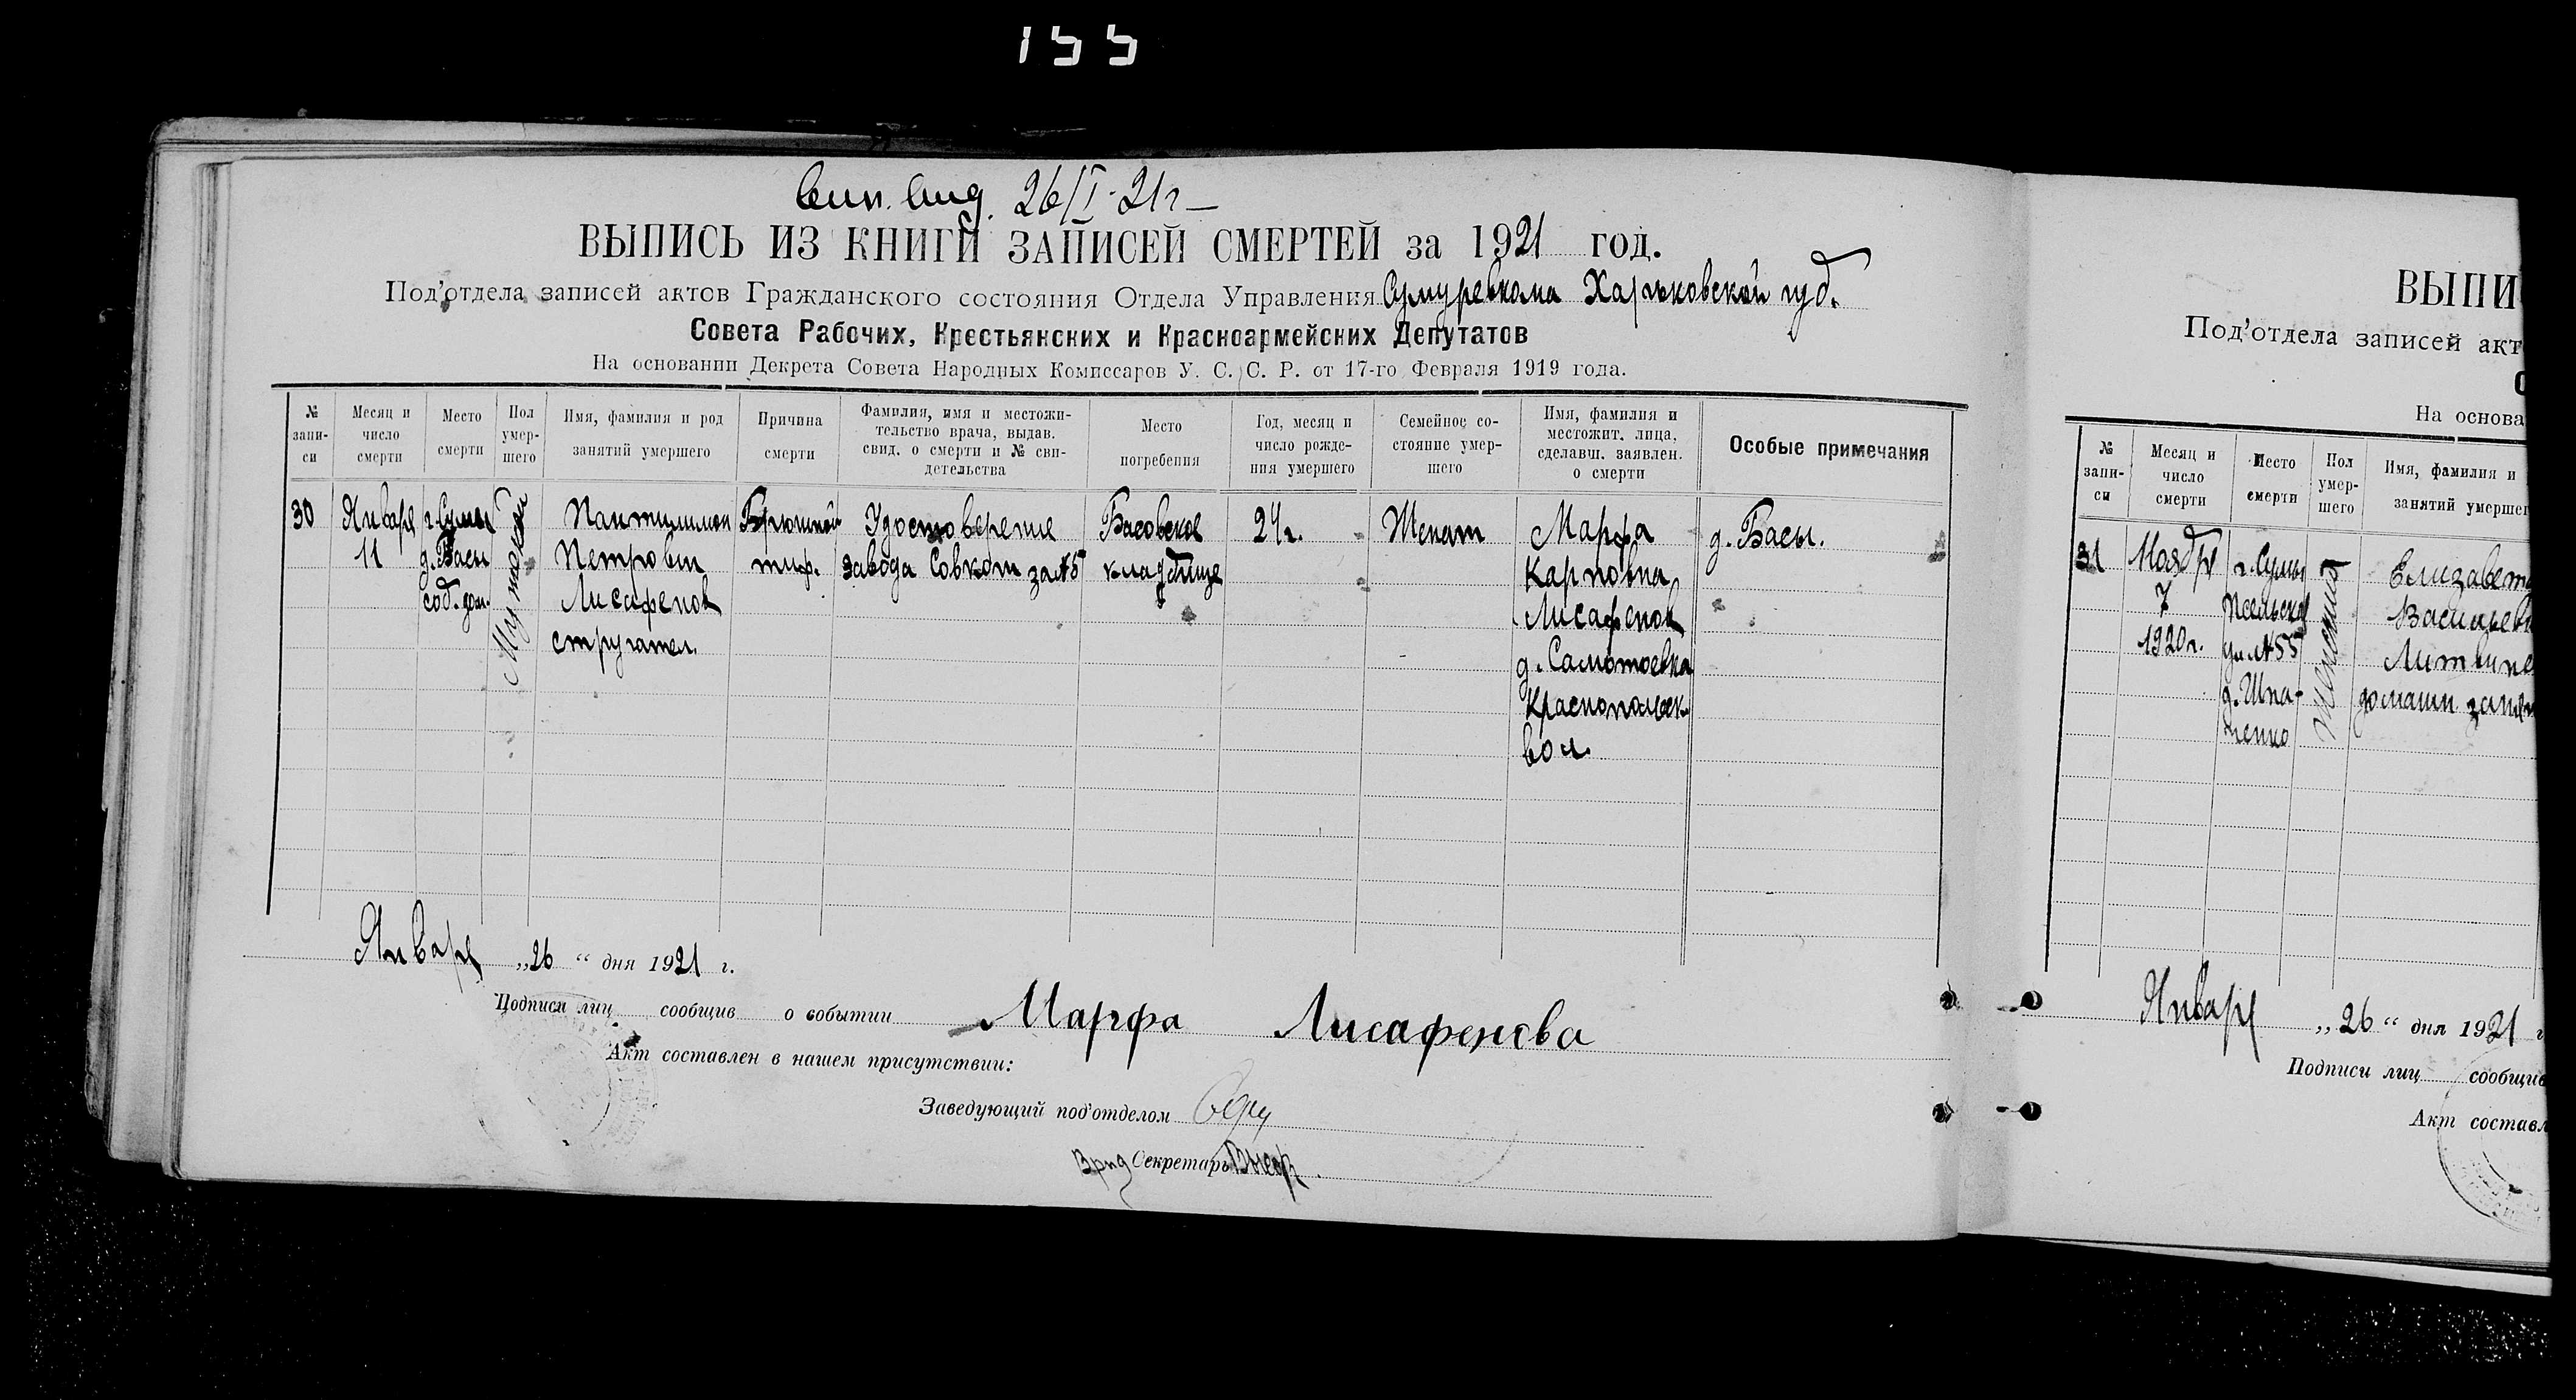 155
26/I-21г
ВЫПИСЬ ИЗ КНИГИ ЗАПИСЕЙ СМЕРТЕЙ за 1921 год.
Под’отдела записей актов Гражданского состояния Отдела Управления Сумуревкома Харьковской губ.
Совета Рабочих, Крестьянских и Красноармейских Депутатов
На основании Декрета Совета Народных Комиссаров У. С. С. Р. от 17-го Февраля 1919 года.
№ запи-си
Месяц и число смерти
Место смерти
Пол умер-шего
Имя, фамилия и род занятий умершего
Причина смерти
Фамилия, имя и местожи-тельство врача, выдав. свид. о смерти и № сви-детельства
Место погребения
Год, месяц и число рожде-ния умершего
Семейное со-стояние умер-шего
Имя, фамилия и местожит. лица, сделавш. заявлен. о смерти
Особые примечания
30
Января
11
г. Сумы
д. Басы
соб. дом.
Мужской
Пантилимон
Петрович
Лисафенов
стругател.
Брюшной
тиф.
Удостоверение
завода Совком за №5
Басовское
кладбище
24г.
Женат
Марфа
Карповна
Лисафенов
д. Самотоевка
Краснопольск.
вол.
д. Басы.
Января „26“ дня 1921 г.
Подписи лиц сообщив о событии Марфа Лисафенова
Акт составлен в нашем присутствии:
Заведующий под’отделом
Врид Секретарь
ВЫПИ
Под’отдела записей акт
С
На основа
№ запи-си
Месяц и число смерти
Место смерти
Пол умер-шего
Имя, фамилия и
занятий умершег
31
Ноября
7
1920г.
г. Сумы
Псельская
ул. №55
д. Шпа-
ненко
Женский
Елизавета
Васильевн
Литвине
домашн. занят
Января „26“ дня 1921 г
Подписи лиц сообщив
Акт составл